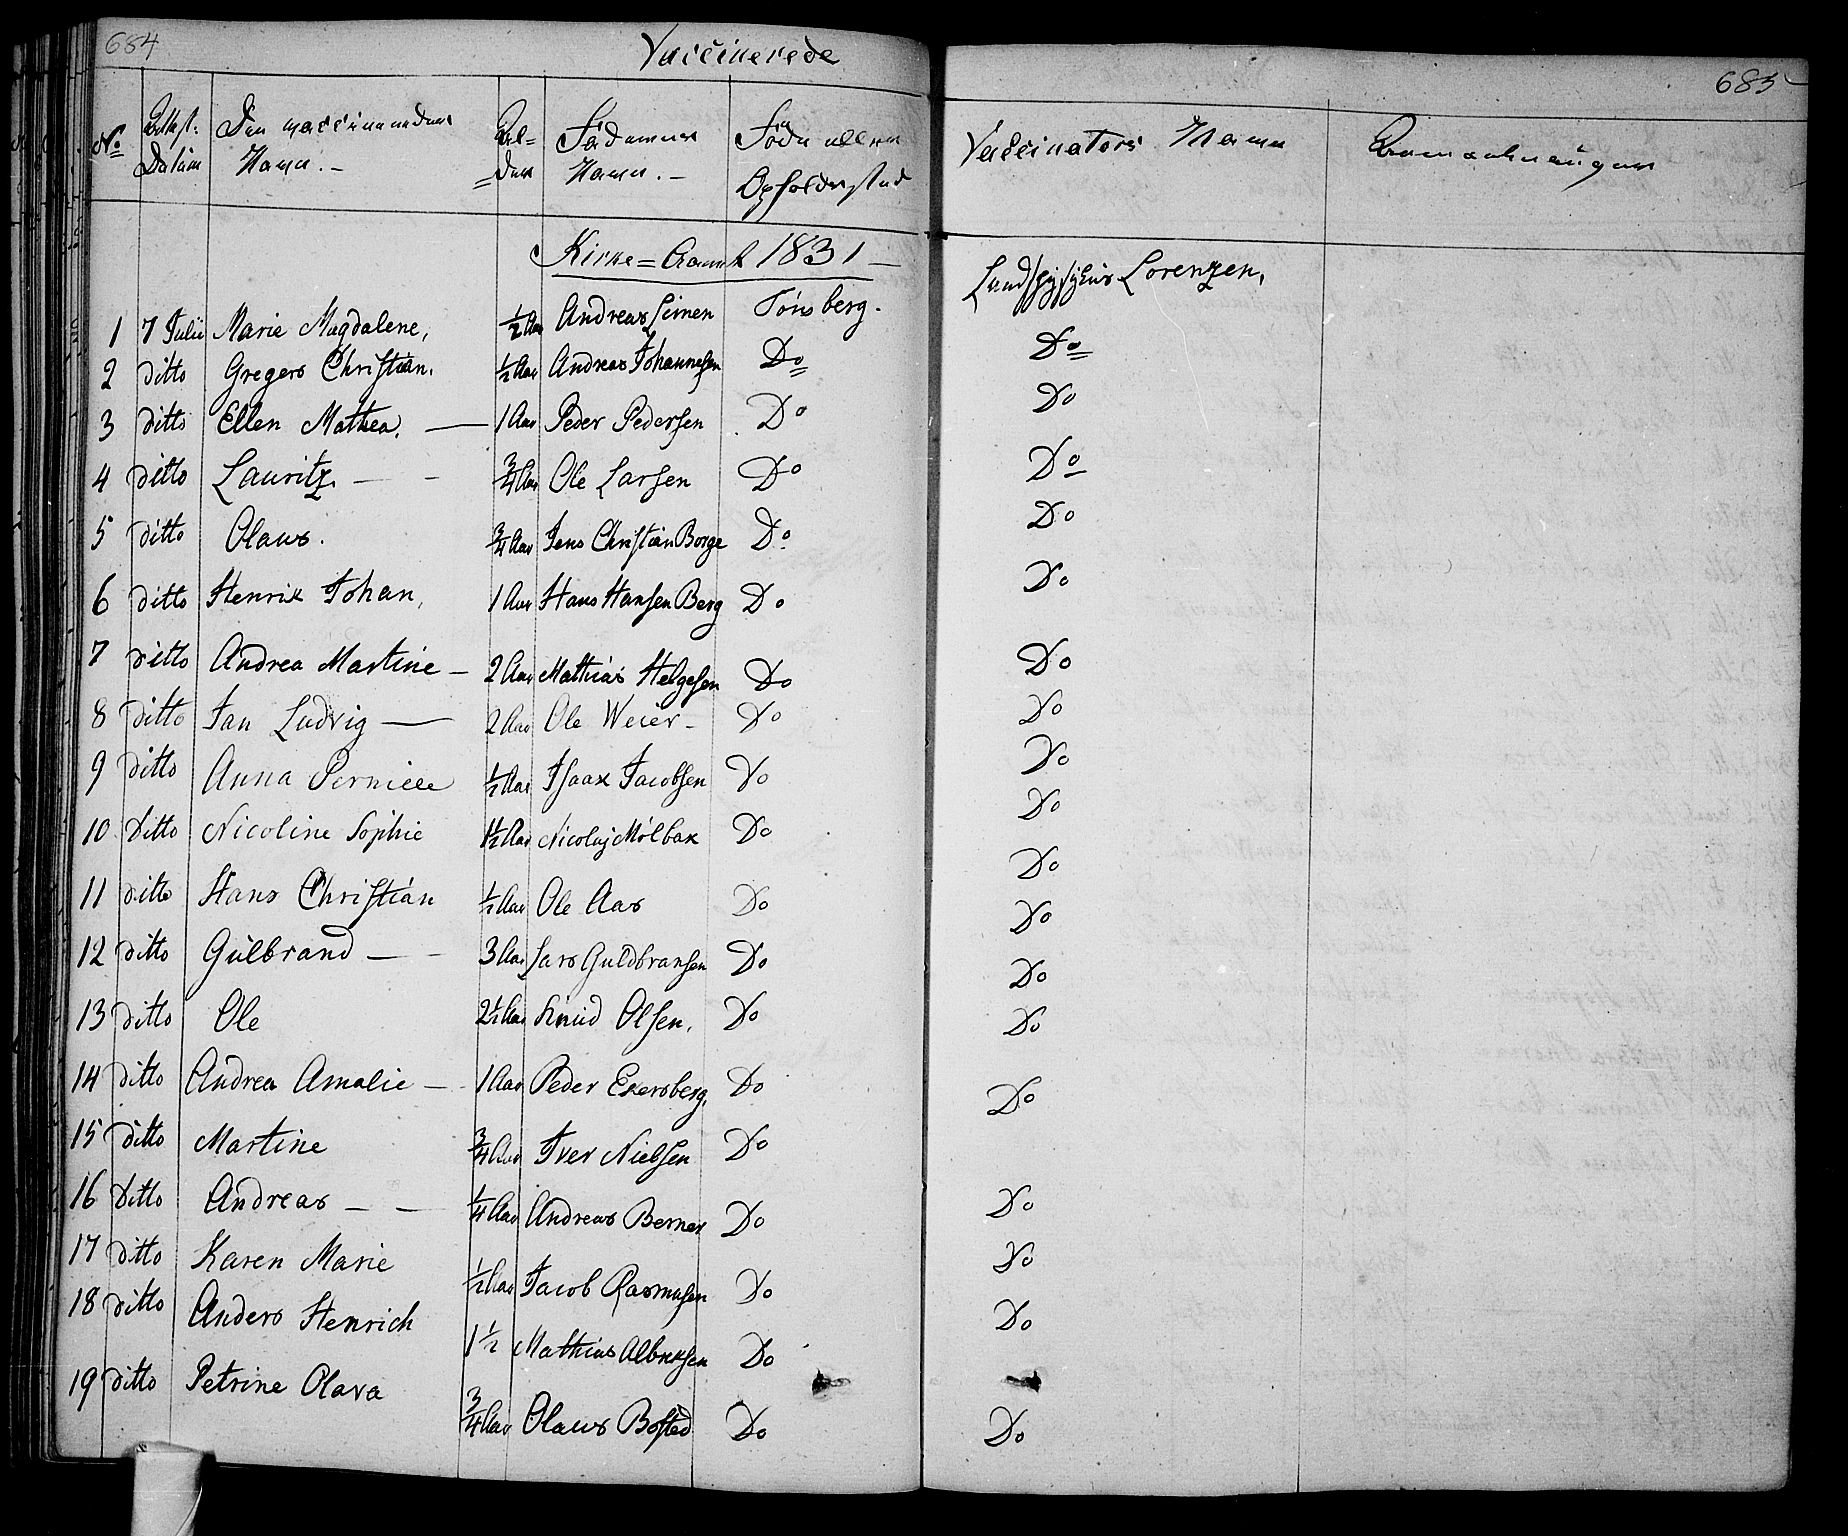 684
Vaccinerede
685
No
Attest: Datum
Den vaccineredes Navn. -
Al= der
Faderens Navn. -
Føde eller Opholdssted
Vaccinators Navn
Anmærkninger
Kirke=Aaret 1831 -
1 7 Julii Marie Magdalene, 1/2 Aar Andreas Simen Tønsberg. Landphysicus Lorenzen,
2 ditto Gregers Christian. 1/2 Aar Andreas Johannesen Do Do
3 ditto Ellen Mathea. — 1 Aar Peder Pedersen Do Do
4 ditto Lauritz. — - 3/4 Aar Ole Larsen Do Do
5 ditto Olaus. 3/4 Aar Jens Christian Borge Do Do
6 ditto Henrik Johan, 1 Aar Hans Hansen Berg Do Do
7 ditto Andrea Martine — 2 Aar Mathias Helgesen Do Do
8 ditto Jan Ludvig — 2 Aar Ole Weier - Do Do
9 ditto Anna Pernille 1/2 Aar Isaax Jacobsen Do Do
10 ditto Nicoline Sophie 1 1/2 Aar Nicolaj Mølbak Do Do
11 ditto Hans Christian 1/2 Aar Ole Aas Do Do
12 ditto Gulbrand — - 3 Aar Lars Guldbransen Do Do
13 ditto Ole 2 1/2 Aar Knud Olsen. Do Do
14 ditto Andrea Amalie — 1 Aar Peder Ekersberg, Do Do
15 ditto Martine 3/4 Aar Iver Nielsen Do Do
16 ditto Andreas — — 1/4 Aar Andreas Berner Do Do
17 ditto Karen Marie 1/2 Aar Jacob Rasmusen Do Do
18 ditto Anders Henrich 1 1/2 Mathias Albretsen Do Do
19 ditto Petrine Olava 3/4 Aar Olaus Bosted Do Do